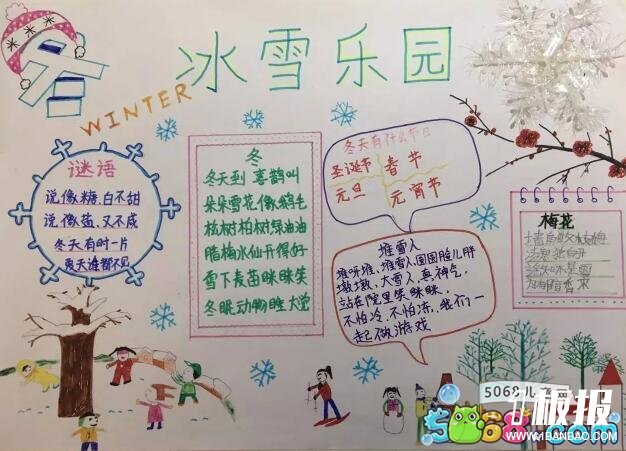 冰雪乐园
WINTER
谜语
说像糖,白不甜
说像盐,又不咸
冬天有时一片
夏天谁都不见
冬
冬天到 喜鹊叫
朵朵雪花像鹅毛
松树柏树绿油油
腊梅水仙开得好
雪下麦苗眯眯笑
冬眠动物睡大觉
冬天有什么节日
圣诞节 春节
元旦 元宵节
堆雪人
堆呀堆,堆雪人,圆圆脸儿胖
墩墩,大雪人,真神气,
站在院里笑眯眯,
不怕冷,不怕冻,我们一
起做游戏
梅花
5068儿
板报
5068
WWW.1BANBAO.COM